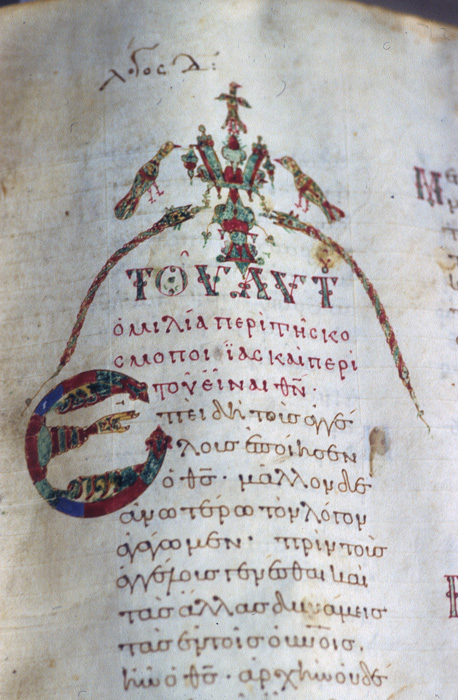 λόγος Δ:
ΤΟΥ ΑΥΤ
ὁμιλία περὶ τῆς κο
σμοποιΐας καὶ περὶ
τοῦ εἶναι θν·
Ἐπειδὴ τοὺς ἀγγέ
λους ἐποίησεν
ὁ θς· μᾶλλον δὲ
ἀνωτέρω τὸν λόγον
ἀγάγωμεν· πρὶν τοὺς
ἀγγέλους γενέσθαι καὶ
τὰς ἄλλας δυνάμεις
τὰς ἐν τοῖς οὐνοῖς.
ἦν ὁ θς· ἀρχὴν οὐδὲ